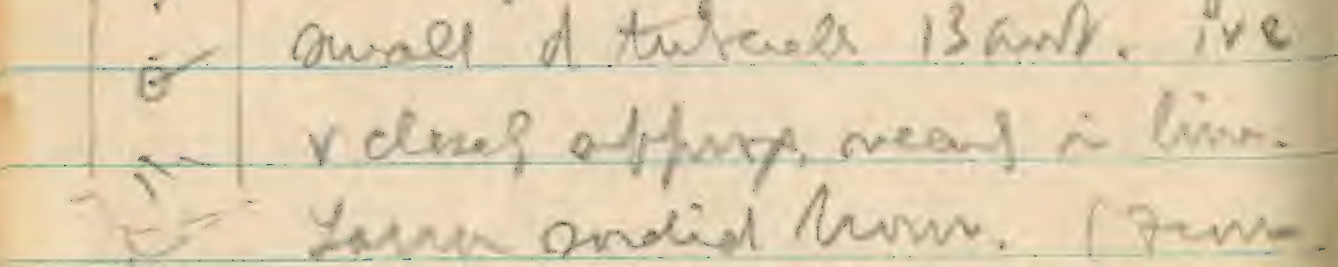 small d tubercels 13 ant. ive
v closely approx, nearly in line.
Larva sordid brown. (From